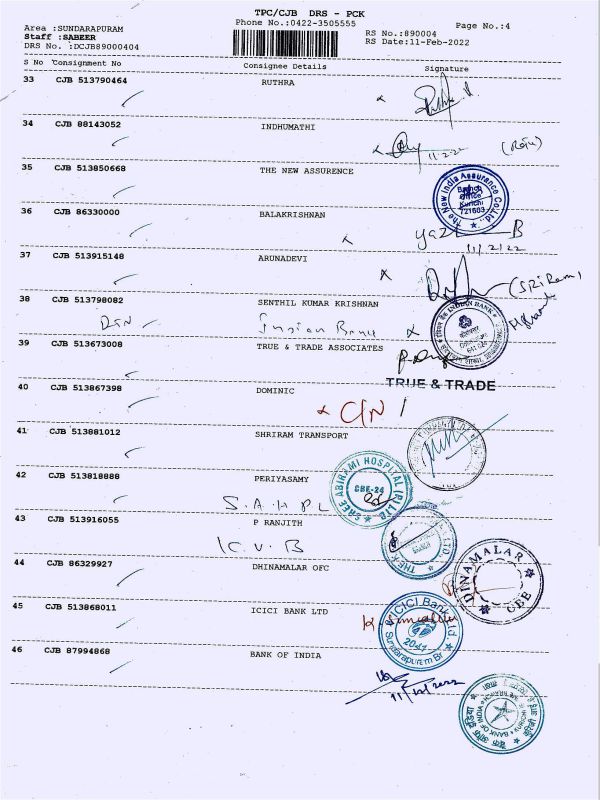 TPC/CJB DRS - PCK
Area :SUNDARAPURAM
Phone No.:0422-3505555
Page No.:4
Staff :SABEER
RS No.:890004
DRS No. :DCJB89000404
RS Date:11-Feb-2022
S No Consignment No Consignee Details Signature
33 CJB 513790464 RUTHRA
34 CJB 88143052 INDHUMATHI
11/2/22
35 CJB 513850668 THE NEW ASSURENCE
The New India Assurance Co.Ltd
Branch
Office
Kurichi
721603
36 CJB 86330000 BALAKRISHNAN
B
11/2/22
37 CJB 513915148 ARUNADEVI
(SRi Ram)
38 CJB 513798082 SENTHIL KUMAR KRISHNAN
Indian Bank
INDIAN BANK
39 CJB 513673008 TRUE & TRADE ASSOCIATES
TRUE & TRADE
40 CJB 513867398 DOMINIC
C/N
41 CJB 513881012 SHRIRAM TRANSPORT
42 CJB 513818888 PERIYASAMY
S.A.H.P.L
SREE ABIRAMI HOSPITAL (P) LTD
CBE-24
43 CJB 513916055 P RANJITH
K.V.B
44 CJB 86329927 DHINAMALAR OFC
DINAMALAR
CBE
45 CJB 513868011 ICICI BANK LTD
ICICI Bank Ltd
Sundarapuram Br
46 CJB 87994868 BANK OF INDIA
BANK OF INDIA